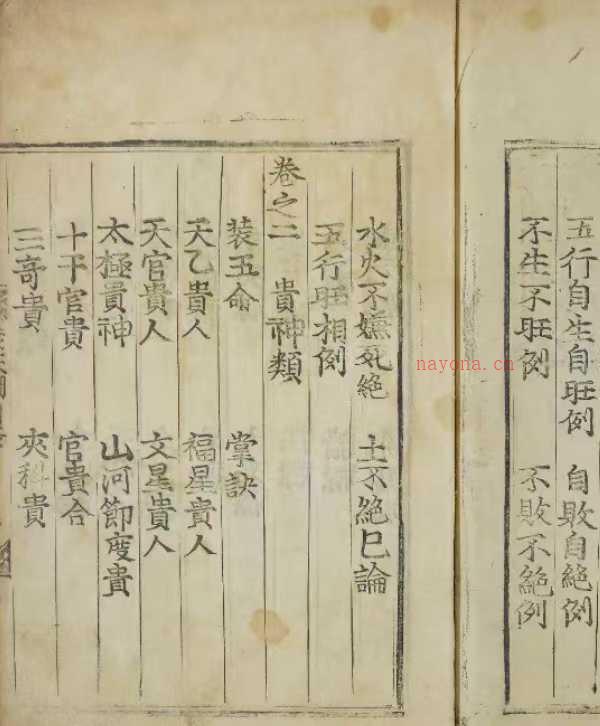 五行自生自旺例　自敗自絕例
不生不旺例　不敗不絕例
水火不嫌死絕　土不絕巳論
五行旺相例
卷之二　貴神類
裝五命　掌訣
天乙貴人　福星貴人
天官貴人　文星貴人
太極貴神　山河節度貴
十干官貴　官貴合
三奇貴　夾科貴
nayona.cn